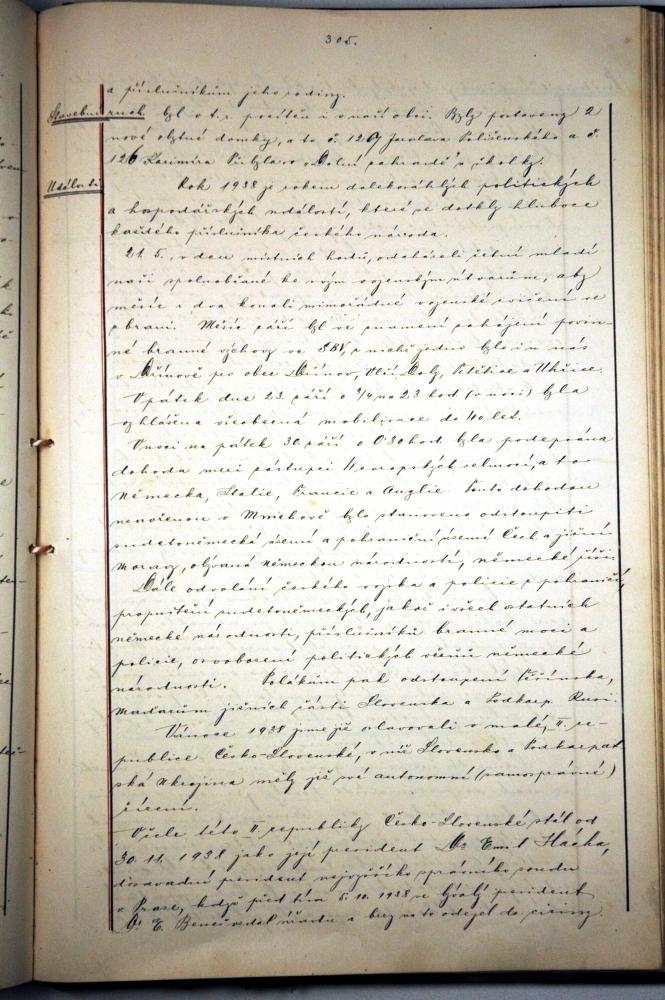 305.
a příslušníkům jeho rodiny.
Stavebníruch. byl v t. r. pocítěn i v naší obci. Byly postaveny 2
nové obytné domky, a to č. 127 Jaroslava a č.
126 Kazimíra v Dolní zahradě u školky.
Události. Rok 1938 je rokem dalekosáhlých politických
a hospodářských událostí, které se dotkly hluboce
každého příslušníka českého národa.
21. 5., v den místních hodů, odcházeli četní mladí
naši spoluobčané ke svým vojenským útvarům, aby
měsíc i dva konali mimořádné vojenské cvičení ve
zbrani. Měsíc září byl ve znamení zahájení povin-
né branné výchovy ve SBV, z nichž jedno bylo i u nás
v pro obec Vel. Uhřice.
V pátek dne 23. září o 3/4 na 23 hod (v noci) byla
vyhlášena všeobecná mobilizace do 40 let.
V noci na pátek 30. září o 0.30 hod. byla podepsána
dohoda mezi zástupci 4 evropských velmocí, a to
Německa, Italie, Francie a Anglie. Touto dohodou
uzavřenou v Mnichově bylo stanoveno odstoupiti
sudetoněmecká území a pohraniční území Čech a jižní
Moravy, obývaná německou národností, německé říši.
Dále odvolání českého vojska a policie z pohraničí,
propuštění sudetoněmeckých, jakož i všech ostatních
německé národnosti, příslušníků branné moci a
policie, osvobození politických vězňů německé
národnosti. Polákům pak odstoupení Těšínska,
Maďarům jižních částí Slovenska a Podkarp. Rusi.
Vánoce 1938 jsme již oslavovali v malé, II. re-
publice Česko-Slovenské, v níž Slovensko a Podkarpat
ská Ukrajina měly již své autonomní (samosprávné)
řízení.
V čele této II. republiky Česko-Slovenské stál od
30. 11. 1938 jako její president Dr Emil Hácha,
dosavadní president nejvyššího správního soudu
v Praze, když před tím 5. 10. 1938 se bývalý president
Dr. E. Beneš vzdal úřadu a brzy na to odejel do ciziny